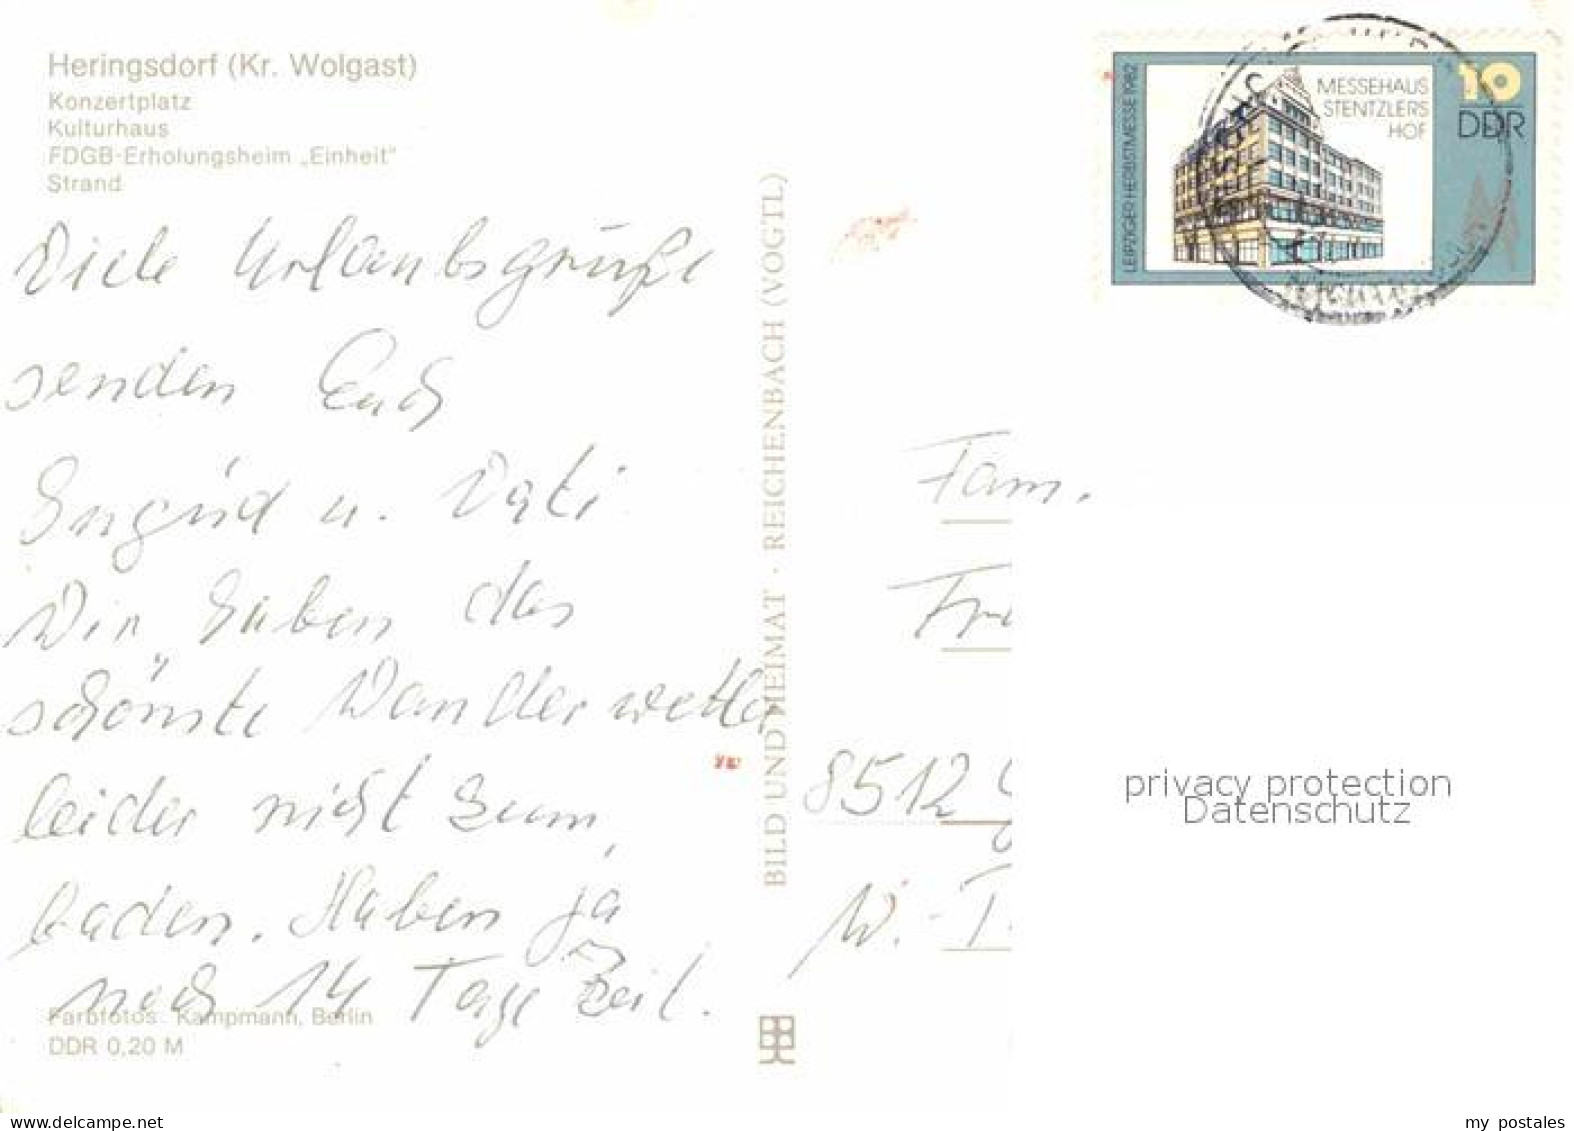 Heringsdorf (Kr. Wolgast)
Konzertplatz
Kulturhaus
FDGB-Erholungsheim „Einheit"
Strand
Viele Urlaubsgrüße
senden Euch
Ingrid u. Vati
Wir haben das
schönste Wanderwetter
leider nicht zum
baden. Haben ja
noch 14 Tage Zeit.
Farbfotos: Kampmann, Berlin
DDR 0,20 M
BILD UND HEIMAT · REICHENBACH (VOGTL)
LEIPZIGER HERBSTMESSE 1982
MESSEHAUS
STENTZLERS
HOF
10
DDR
Fam.
8512
W.-
privacy protection
Datenschutz
www.delcampe.net
my postales